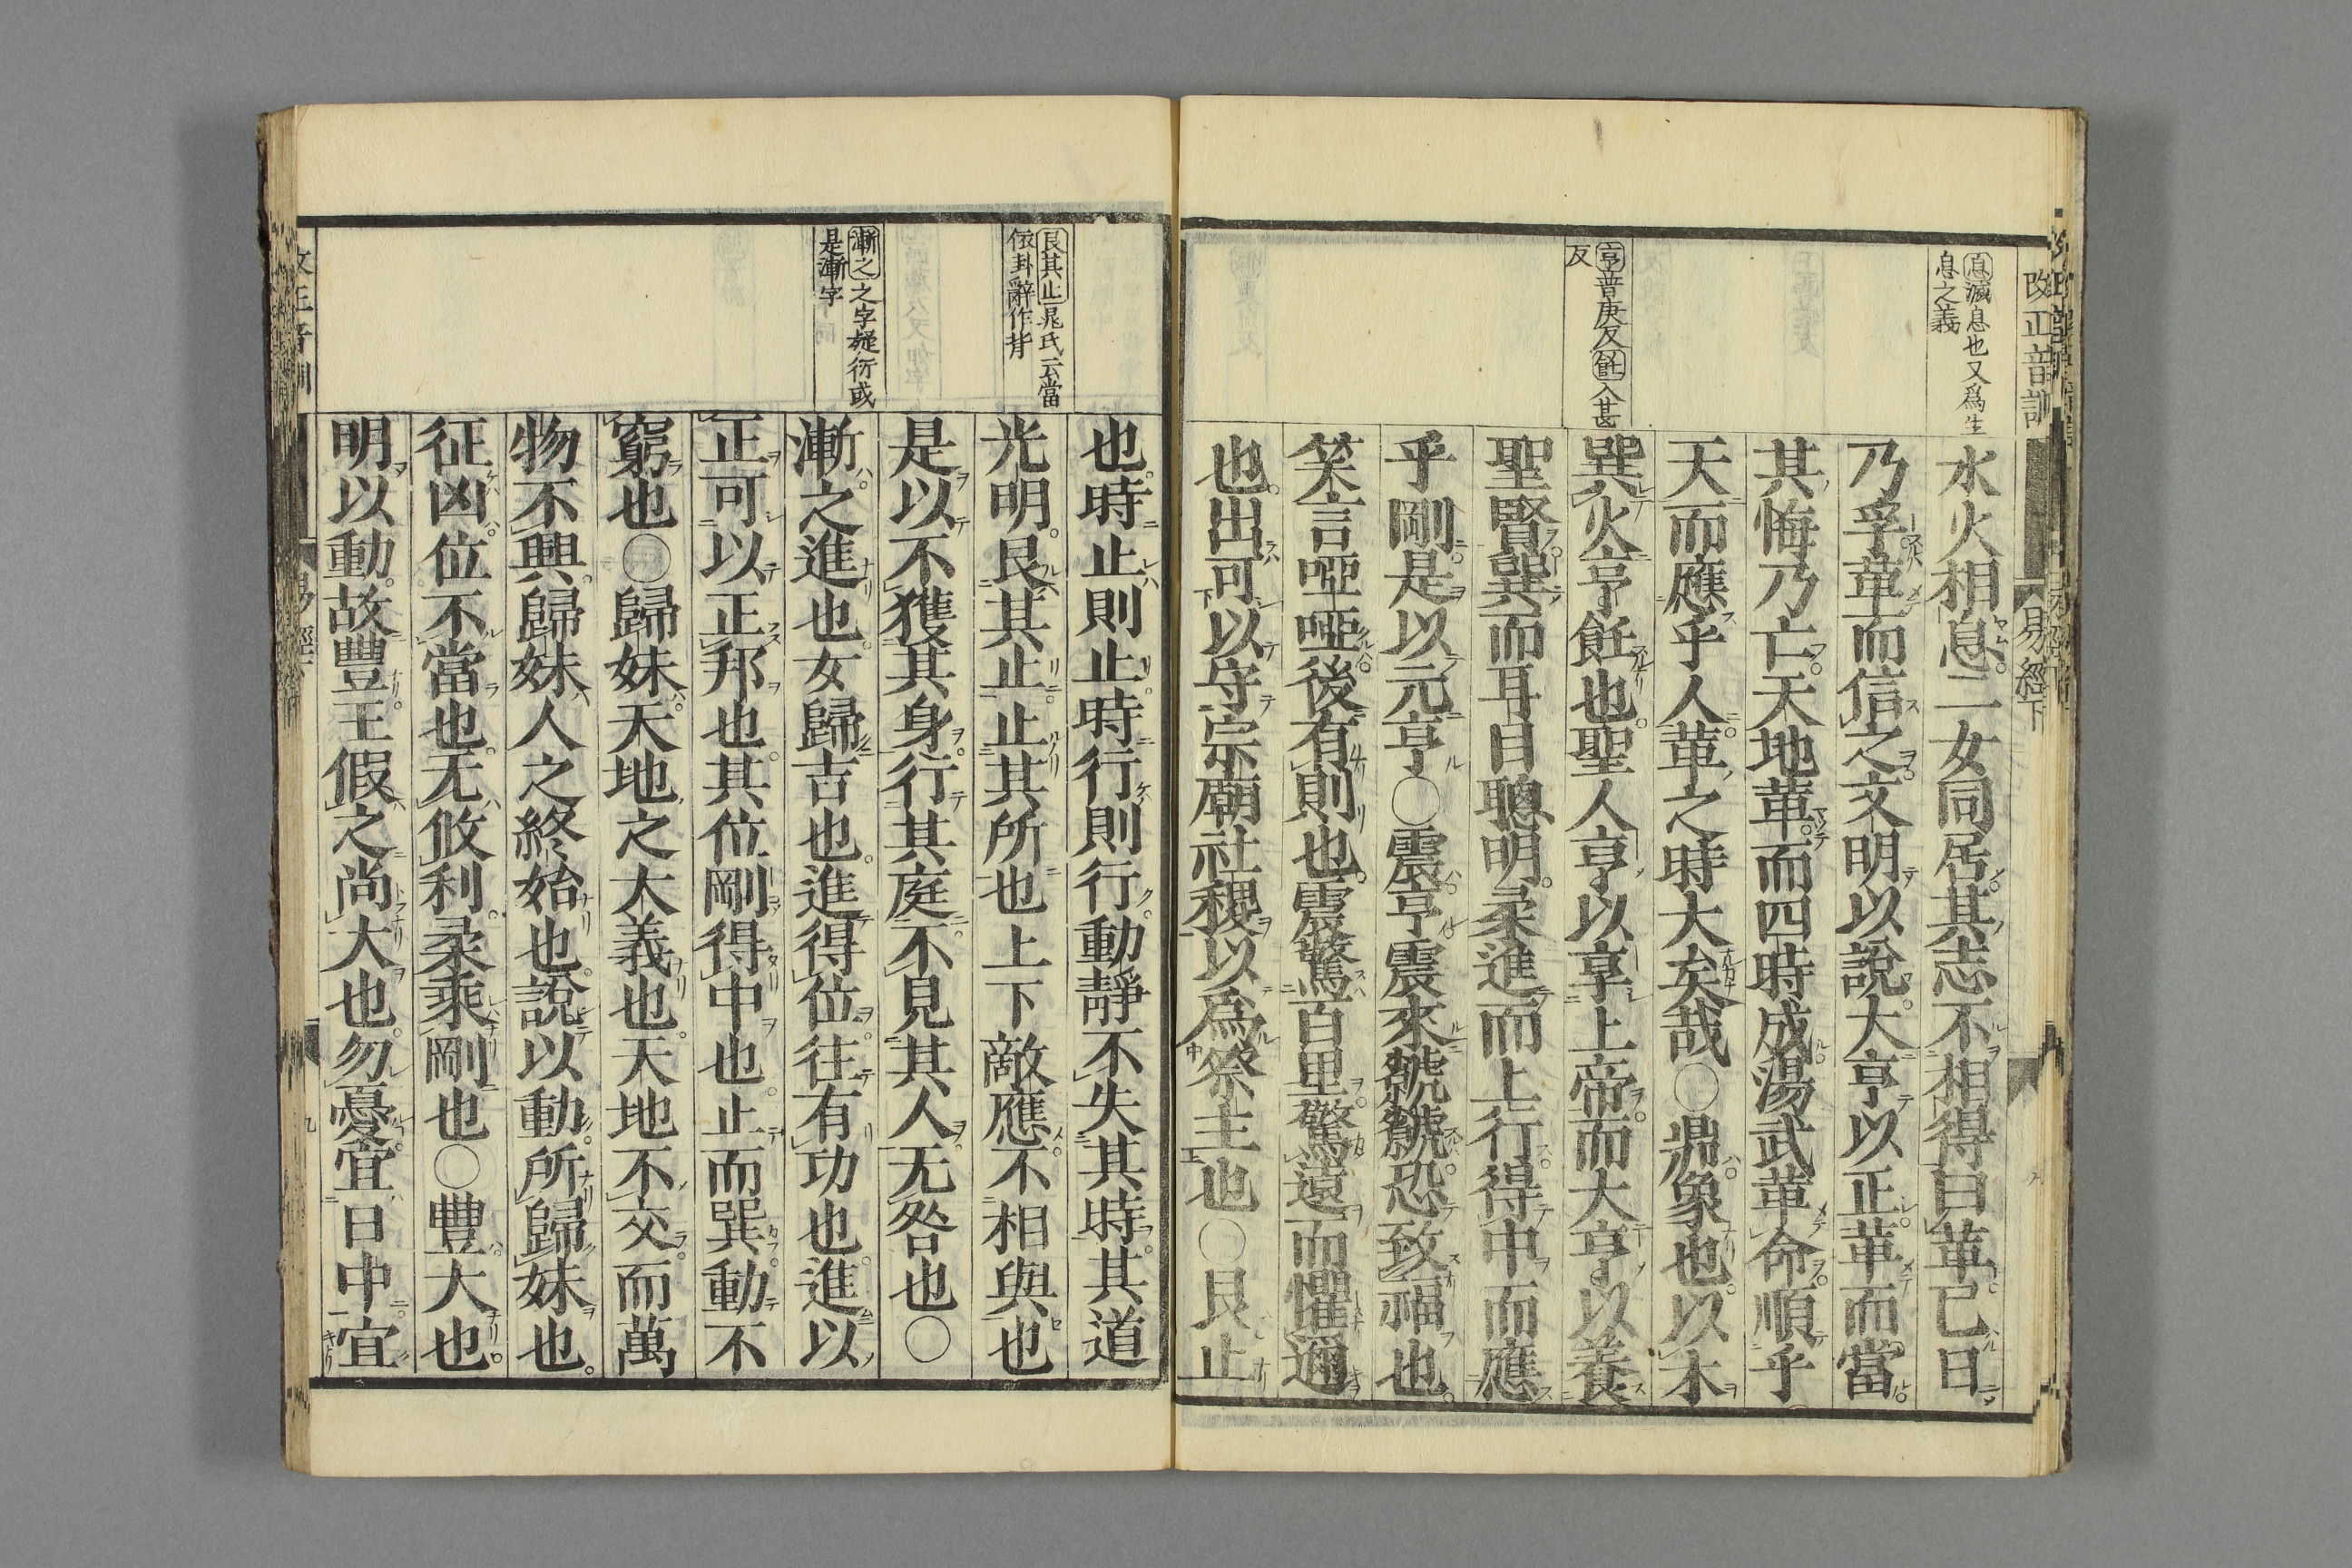 改正音訓
易經下
息滅息也又爲生
息之義
亨普庚反飪入甚
反
水火相息二女同居其志不相得曰革已日
乃孚革而信之文明以說大亨以正革而當
其悔乃亡天地革而四時成湯武革命順乎
天而應乎人革之時大矣哉〇鼎象也以木
巽火亨飪也聖人亨以享上帝而大亨以養
聖賢巽而耳目聰明柔進而上行得中而應
乎剛是以元亨〇震亨震來虩虩恐致福也
笑言啞啞後有則也震驚百里驚遠而懼邇
也出可以守宗廟社稷以爲祭主也〇艮止
艮其止晁氏云當
依卦辭作背
漸之之字疑衍或
是漸字
也時止則止時行則行動靜不失其時其道
光明艮其止止其所也上下敵應不相與也
是以不獲其身行其庭不見其人无咎也〇
漸之進也女歸吉也進得位往有功也進以
正可以正邦也其位剛得中也止而巽動不
窮也〇歸妹天地之大義也天地不交而萬
物不興歸妹人之終始也說以動所歸妹也
征凶位不當也无攸利柔乘剛也〇豐大也
明以動故豐王假之尚大也勿憂宜日中宜